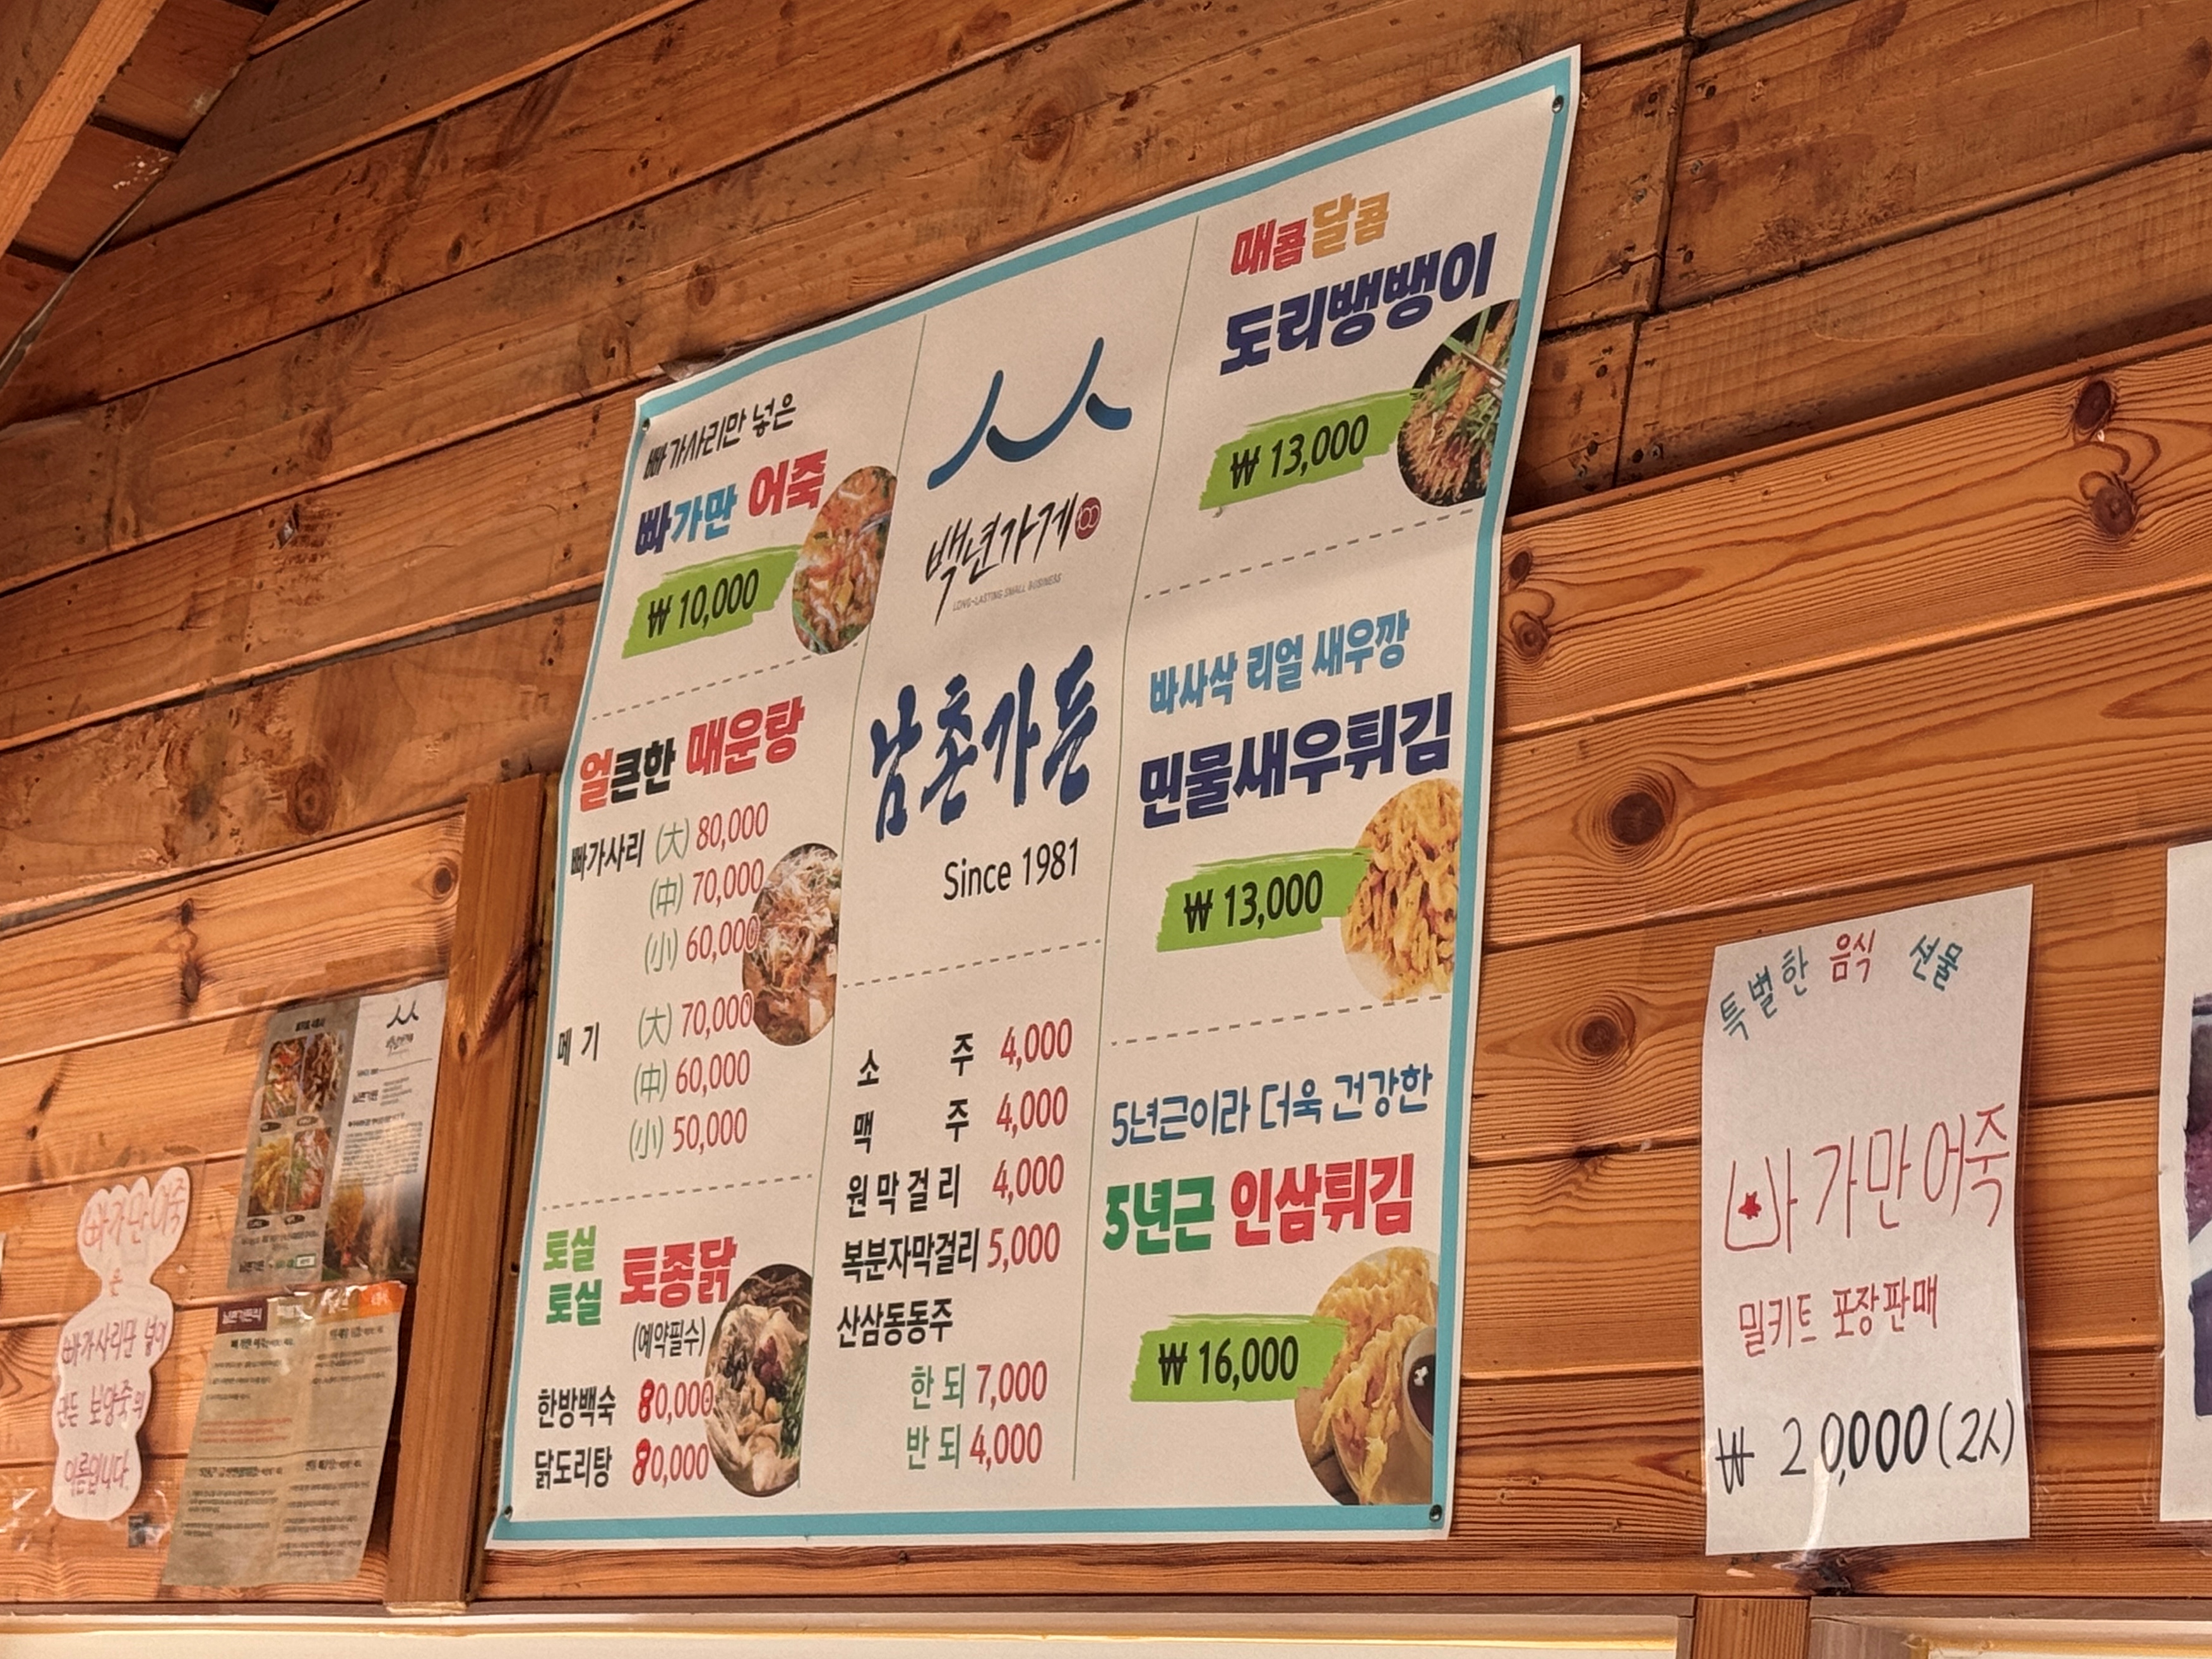 빠가사리만 넣은
빠가만 어죽
₩ 10,000
얼큰한 매운탕
빠가사리 (大) 80,000
(中) 70,000
(小) 60,000
메기 (大) 70,000
(中) 60,000
(小) 50,000
토실
토실
토종닭
(예약필수)
한방백숙 80,000
닭도리탕 80,000
백년가게
LONG-LASTING SMALL BUSINESS
남촌가든
Since 1981
소주 4,000
맥주 4,000
원막걸리 4,000
복분자막걸리 5,000
산삼동동주
한 되 7,000
반 되 4,000
매콤달콤
도리뱅뱅이
₩ 13,000
바사삭 리얼 새우깡
민물새우튀김
₩ 13,000
5년근이라 더욱 건강한
5년근 인삼튀김
₩ 16,000
특별한 음식 선물
빠가만어죽
밀키트 포장판매
₩ 20,000(2人)
빠가만어죽
은
빠가사리만 넣어
만든 보양죽의
이름입니다.
백년가게